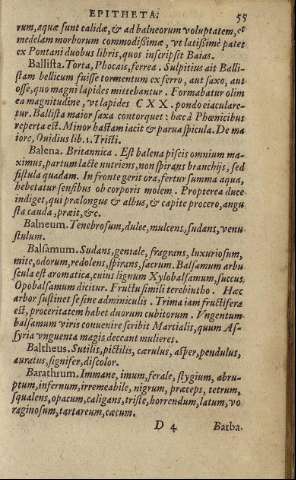 EPITHETA. 55
rum, aquæ sunt calidæ, & ad balneorum voluptatem, et
medelam morborum commodissimæ, vt latissimè patet
ex Pontani duobus libris, quos inscripsit Baias.
Ballista. Torta, Phocais, ferrea. Sulpitius ait Balli-
stam bellicum fuisse tormentum ex ferro, aut saxo, aut
osse, quo magni lapides mittebantur. Formabatur olim
ea magnitudine, vt lapides CXX. pondo eiacularē-
tur. Ballista maior saxa contorquet: hæc à Phœnicibus
reperta est. Minor hastam iacit & parua spicula. De ma
iore, Ouidius lib. 1. Tristi.
Balena. Britannica. Est balena piscis omnium ma-
ximus, partum lacte nutriens, non spirans branchijs, sed
fistula quadam. In fronte gerit ora, fertur summa aqua,
hebetatur sensibus ob corporis molem. Propterea duce
indiget, qui prælongus & albus, & capite procero, angu
sta cauda, præit, &c.
Balneum. Tenebrosum, dulce, mulcens, sudans, venu
stulum.
Balsamum. Sudans, geniale, fragrans, luxuriosum,
mite, odorum, redolens, spirans, sacrum. Balsamum arbu
scula est aromatica, cuius lignum Xylobalsamum, succus,
Opobalsamum dicitur. Fructu simili terebintho. Hæc
arbor sustinet se sine adminiculis. Trima iam fructifera
est, proceritatem habet duorum cubitorum. Vngentum
balsamum viris conuenire scribit Martialis, quum As-
syria vnguenta magis deccant mulieres.
Baltheus. Sutilis, pictilis, cærulus, asper, pendulus,
auratus, signifer, discolor.
Barathrum. Immane, imum, ferale, stygium, abru-
ptum, infernum, irremeabile, nigrum, præceps, tetrum,
squalens, opacum, caligans, triste, horrendum, latum, vo
raginosum, tartareum, cæcum.
D 4 Barba.